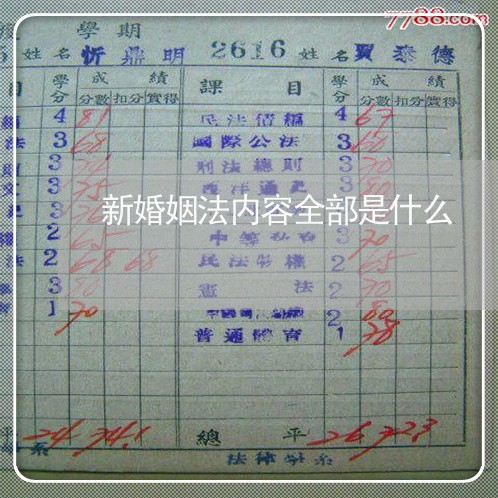 7788.com
學期
姓名 忻鼎明 2616 姓名 賈泰德
目 學分 成績 課目 學分 成績
分數 扣分 實得 分數 扣分 實得
4 81 民法債編 4 67
法 3 68 國際公法 3 60
3 刑法總則 3 70
3 75 西洋通史 3 80
新婚姻法内容全部是什么
2 65 3 70
法 2 68 68 民法物權 2 65
3 80 憲法 2 70
1 70 2 80
普通體育 1 78
平 24 74.1 總平 26 72.3
法律學系